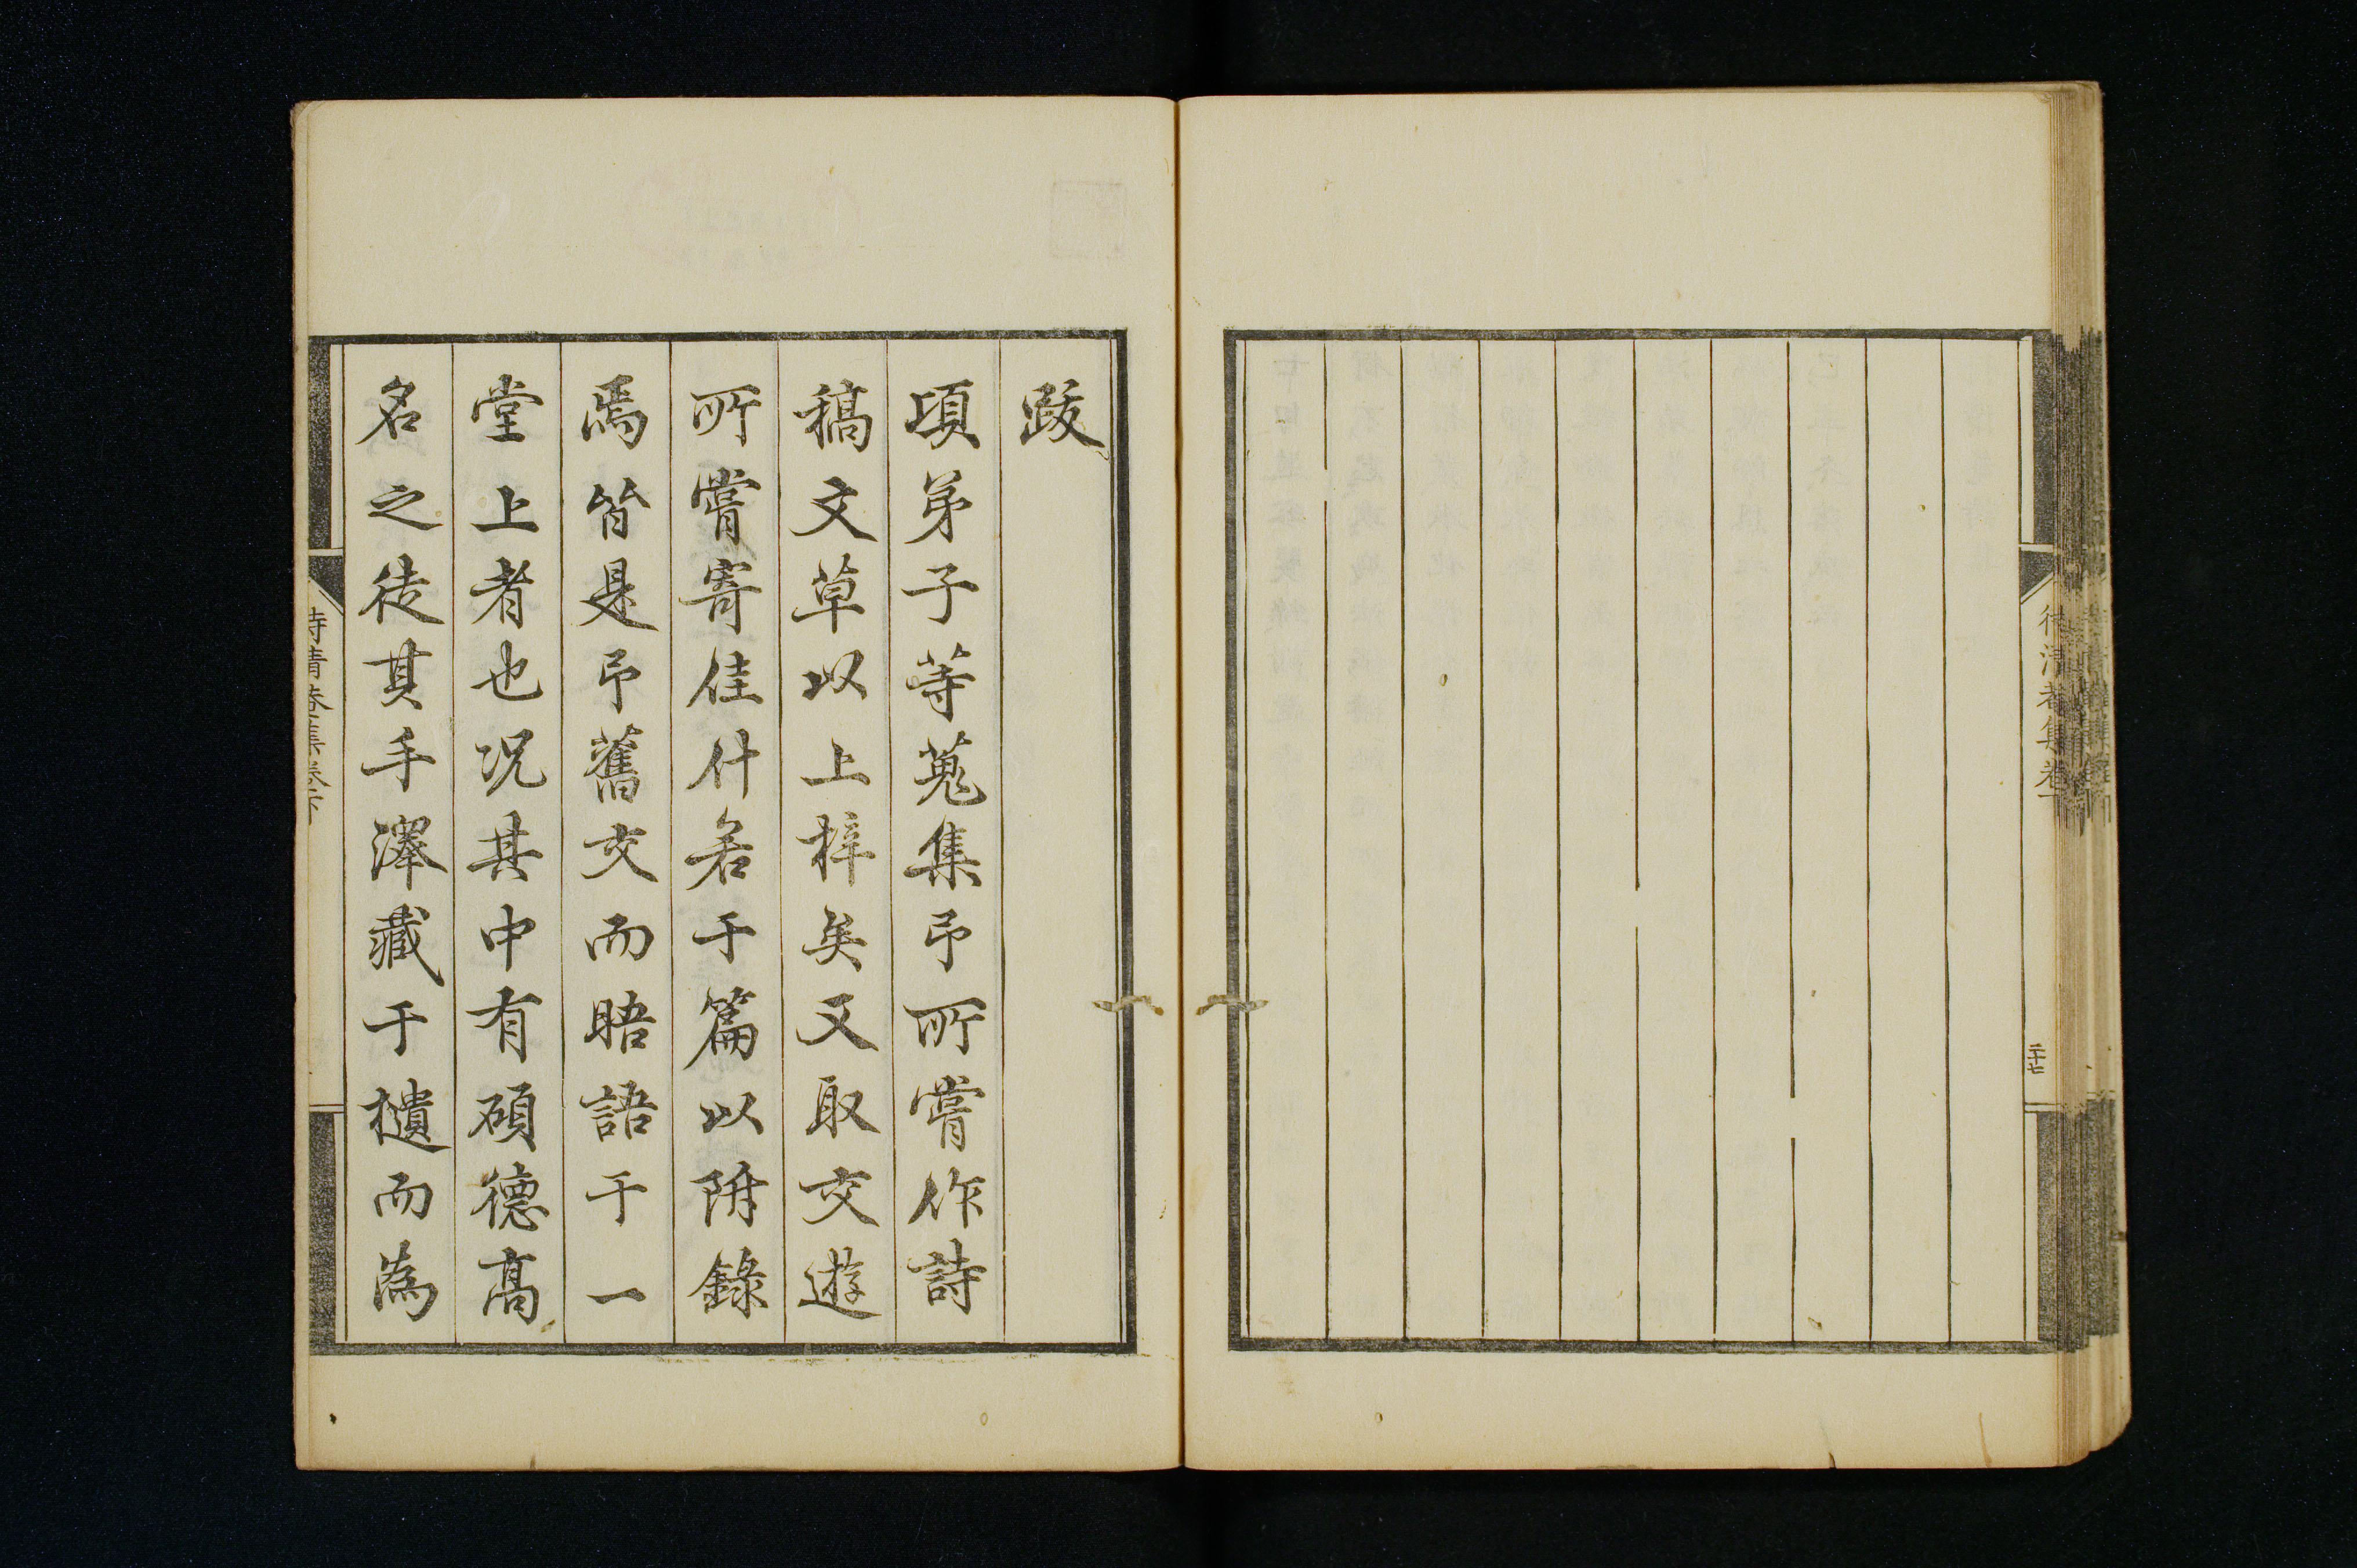 待清菴集卷下
二十七
跋
頃弟子等蒐集卬所嘗作詩
稿文草以上梓矣又取交遊
所嘗寄佳什若干篇以附錄
焉皆是卬舊交而晤語于一
堂上者也况其中有碩德高
名之徒其手澤藏于櫃而為
待清菴集卷下